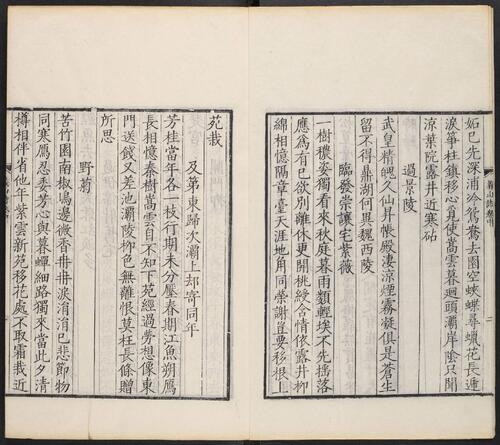 妬已先深浦冷鴛鴦去園空蛺蝶尋蠟花長遞
淚箏柱鎮移心覓使嵩雲暮迴頭灞岸陰只聞
涼葉院露井近寒砧
過景陵
武皇精魄久仙昇帳殿淒涼煙霧凝俱是蒼生
留不得鼎湖何異魏西陵
臨發崇讓宅紫薇
一樹穠姿獨看來秋庭暮雨類輕埃不先搖落
應為有已欲別離休更開桃綬含情依露井柳
綿相憶隔章臺天涯地角同榮謝豈要移根上
苑栽
及第東歸次灞上却寄同年
芳桂當年各一枝行期未分壓春期江魚朔鴈
長相憶秦樹嵩雲自不知下苑經過勞想像東
門送餞又差池灞陵柳色無離恨莫枉長條贈
所思
野菊
苦竹園南椒塢邊微香冉冉淚涓涓已悲節物
同寒鴈忍委芳心與暮蟬細路獨來當此夕清
樽相伴省他年紫雲新苑移花處不取霜栽近